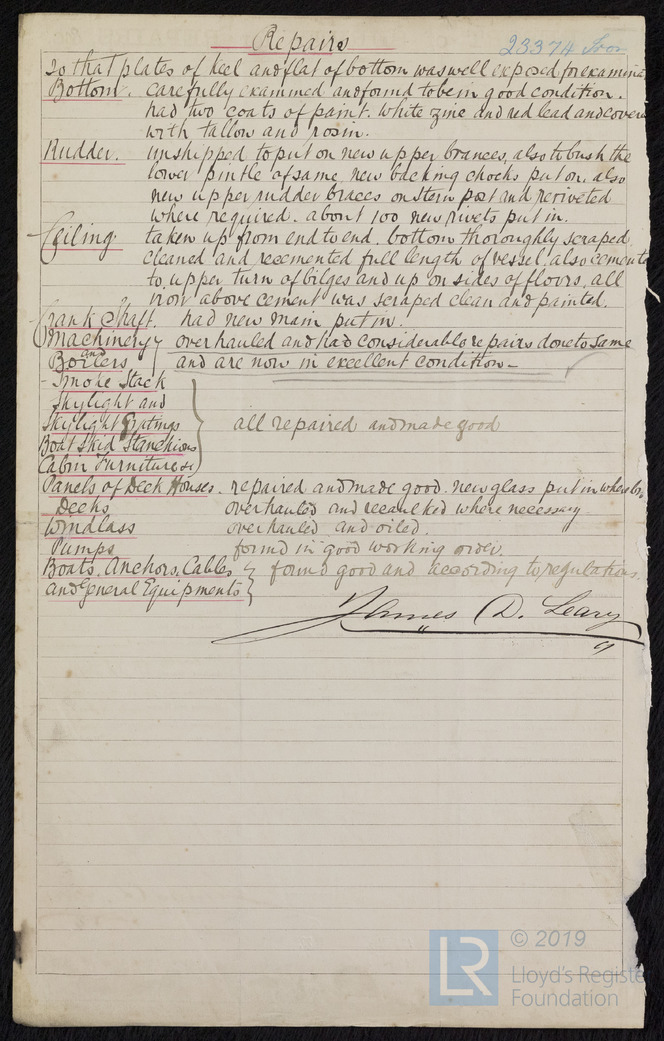 Repairs
23374 Iron
So that plates of keel and flat of bottom was well exposed for examina
Bottom. carefully examined and found to be in good condition.
had two coats of paint. white zinc and red lead and cover
with tallow and rosin.
Rudder. unshipped to put on new upper brances, also to bush the
lower pintle of same, new backing chocks put on. also
new upper rudder braces on stern post and reriveted
where required. about 100 new rivets put in.
Ceiling taken up from end to end. bottom thoroughly scraped,
cleaned and recemented full length of vessel. also cemente
to, upper turn of bilges and up on sides of floors, all
iron above cement was scraped clean and painted.
Crank Shaft. had new main put in.
Machinery overhauled and had considerable repairs done to same
and
Boilers and are now in excellent condition –
Smoke Stack
Skylight and
Skylight Gratings all repaired and made good
Boat skid Stanchions
Cabin Furniture &c
Panels of Deck Houses. repaired and made good. new glass put in where bro
Decks overhauled and recaulked where necessary
Windlass overhauled and oiled.
Pumps found in good working order.
Boats, Anchors, Cables found good and according to regulations.
and General Equipments
James D. Leary
© 2019
Lloyd's Registe
Foundation
LR